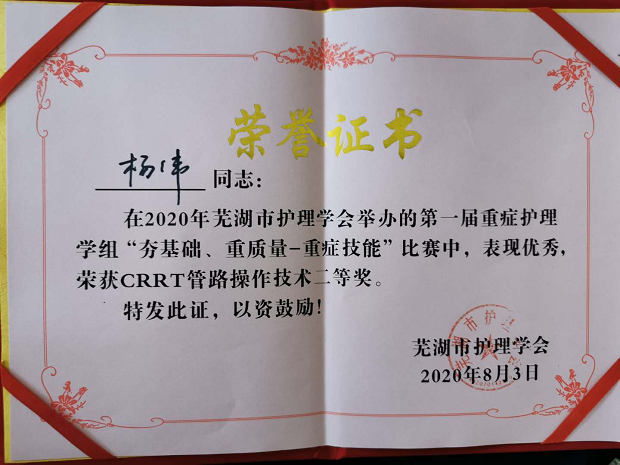 荣誉证书
杨伟 同志：
在2020年芜湖市护理学会举办的第一届重症护理
学组“夯基础、重质量-重症技能”比赛中，表现优秀，
荣获CRRT管路操作技术二等奖。
特发此证，以资鼓励！
芜湖市护理学会
2020年8月3日